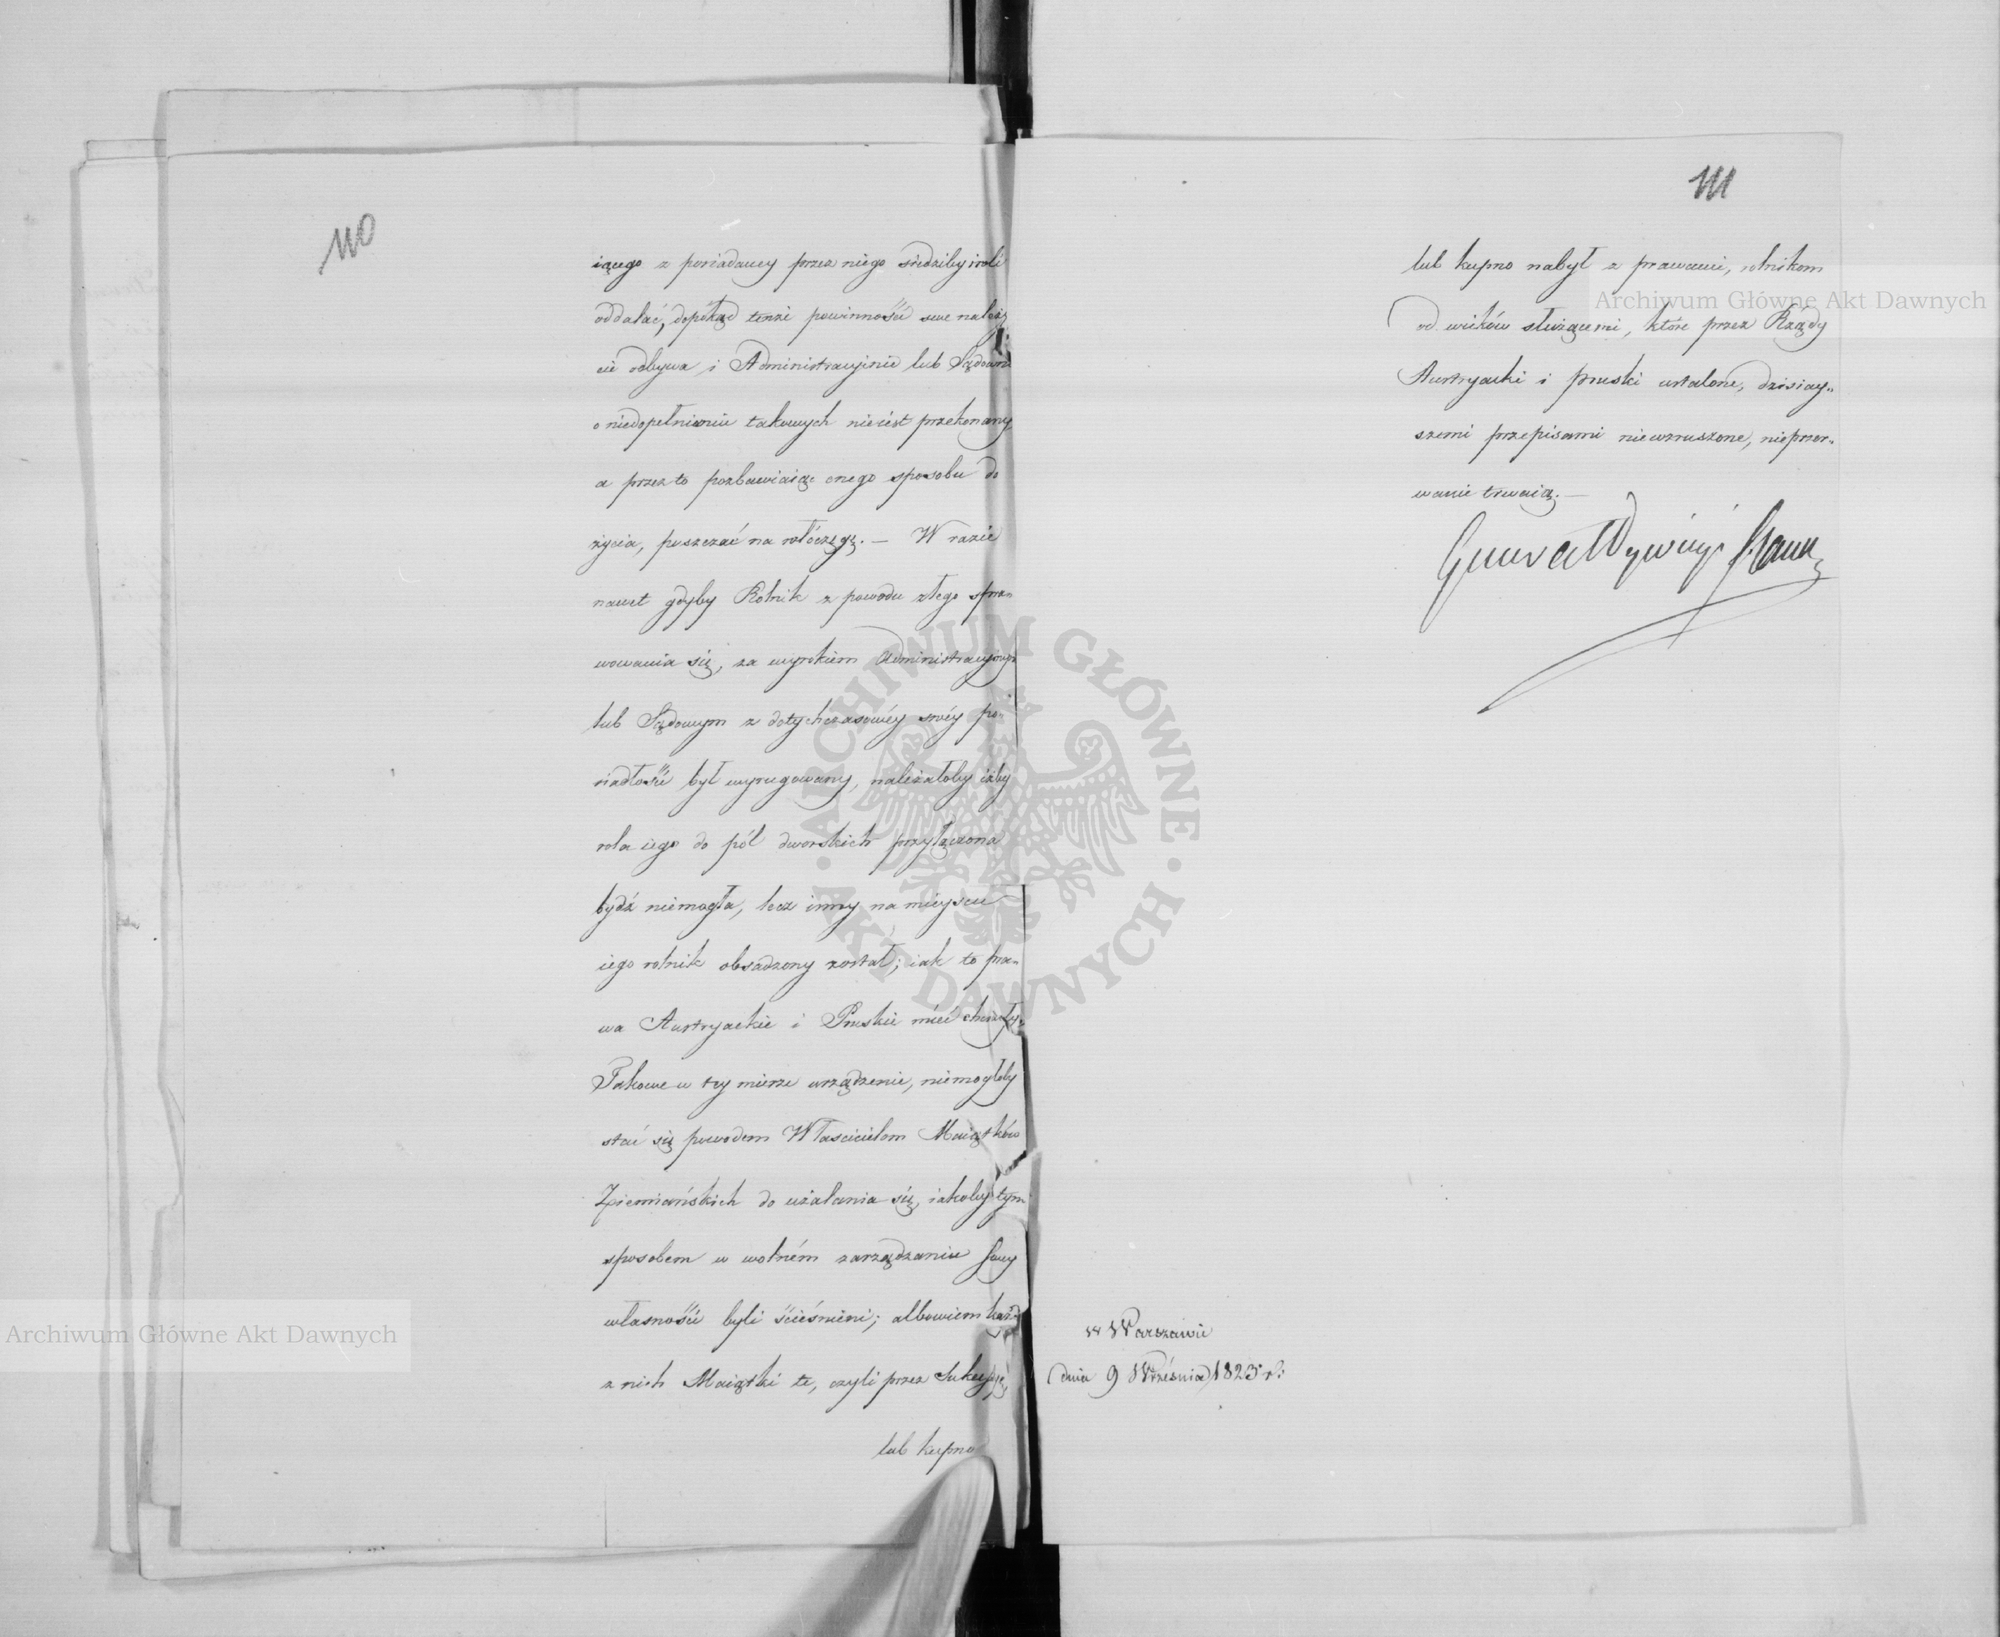 110
iącego z posiadaney przez niego siedziby i roli
oddalać, dopókąd tenże powinności swe należy
cie odbywa i Administracyjnie lub Sądowni
o niedopełnieniu takowych nieiest przekonany,
a przez to pozbawiaiąc onego sposobu do
życia, puszczać na włóczęgę. — W razie
nawet gdyby Rolnik z powodu złego spra„
wowania się, za wyrokiem Administracyinym
lub Sądowym z dotychczasowéy swéy po„
siadłości był wyrugowany, należałoby iżby
rola iego do pól dworskich przyłączona
bydź niemogła, lecz inny na mieysce
iego rolnik obsadzony został; iak to pra„
wa Austryackie i Pruskie mieć chciały.
Takowe w tey mierze urządzenie, niemogłoby
stać się powodem Właścicielom Maiątków
Ziemiańskich do użalania się, iakoby tym
sposobem w wolném zarządzaniu swey
własności byli ścieśnieni; albowiem każd
z nich Maiątki te, czyli przez Sukcessyę,
lub kupno
111
lub kupno nabył z prawami, rolnikom
od wieków służącemi, które przez Rządy
Austryacki i pruski ustalone, dzisiay„
szemi przepisami niewzruszone, nieprzer„
wanie trwaią. —
Generał Dywizyi
w Warszawie
dnia 9 Września 1823 r:
Archiwum Główne Akt Dawnych
Archiwum Główne Akt Dawnych
ARCHIWUM GŁÓWNE · AKT DAWNYCH ·